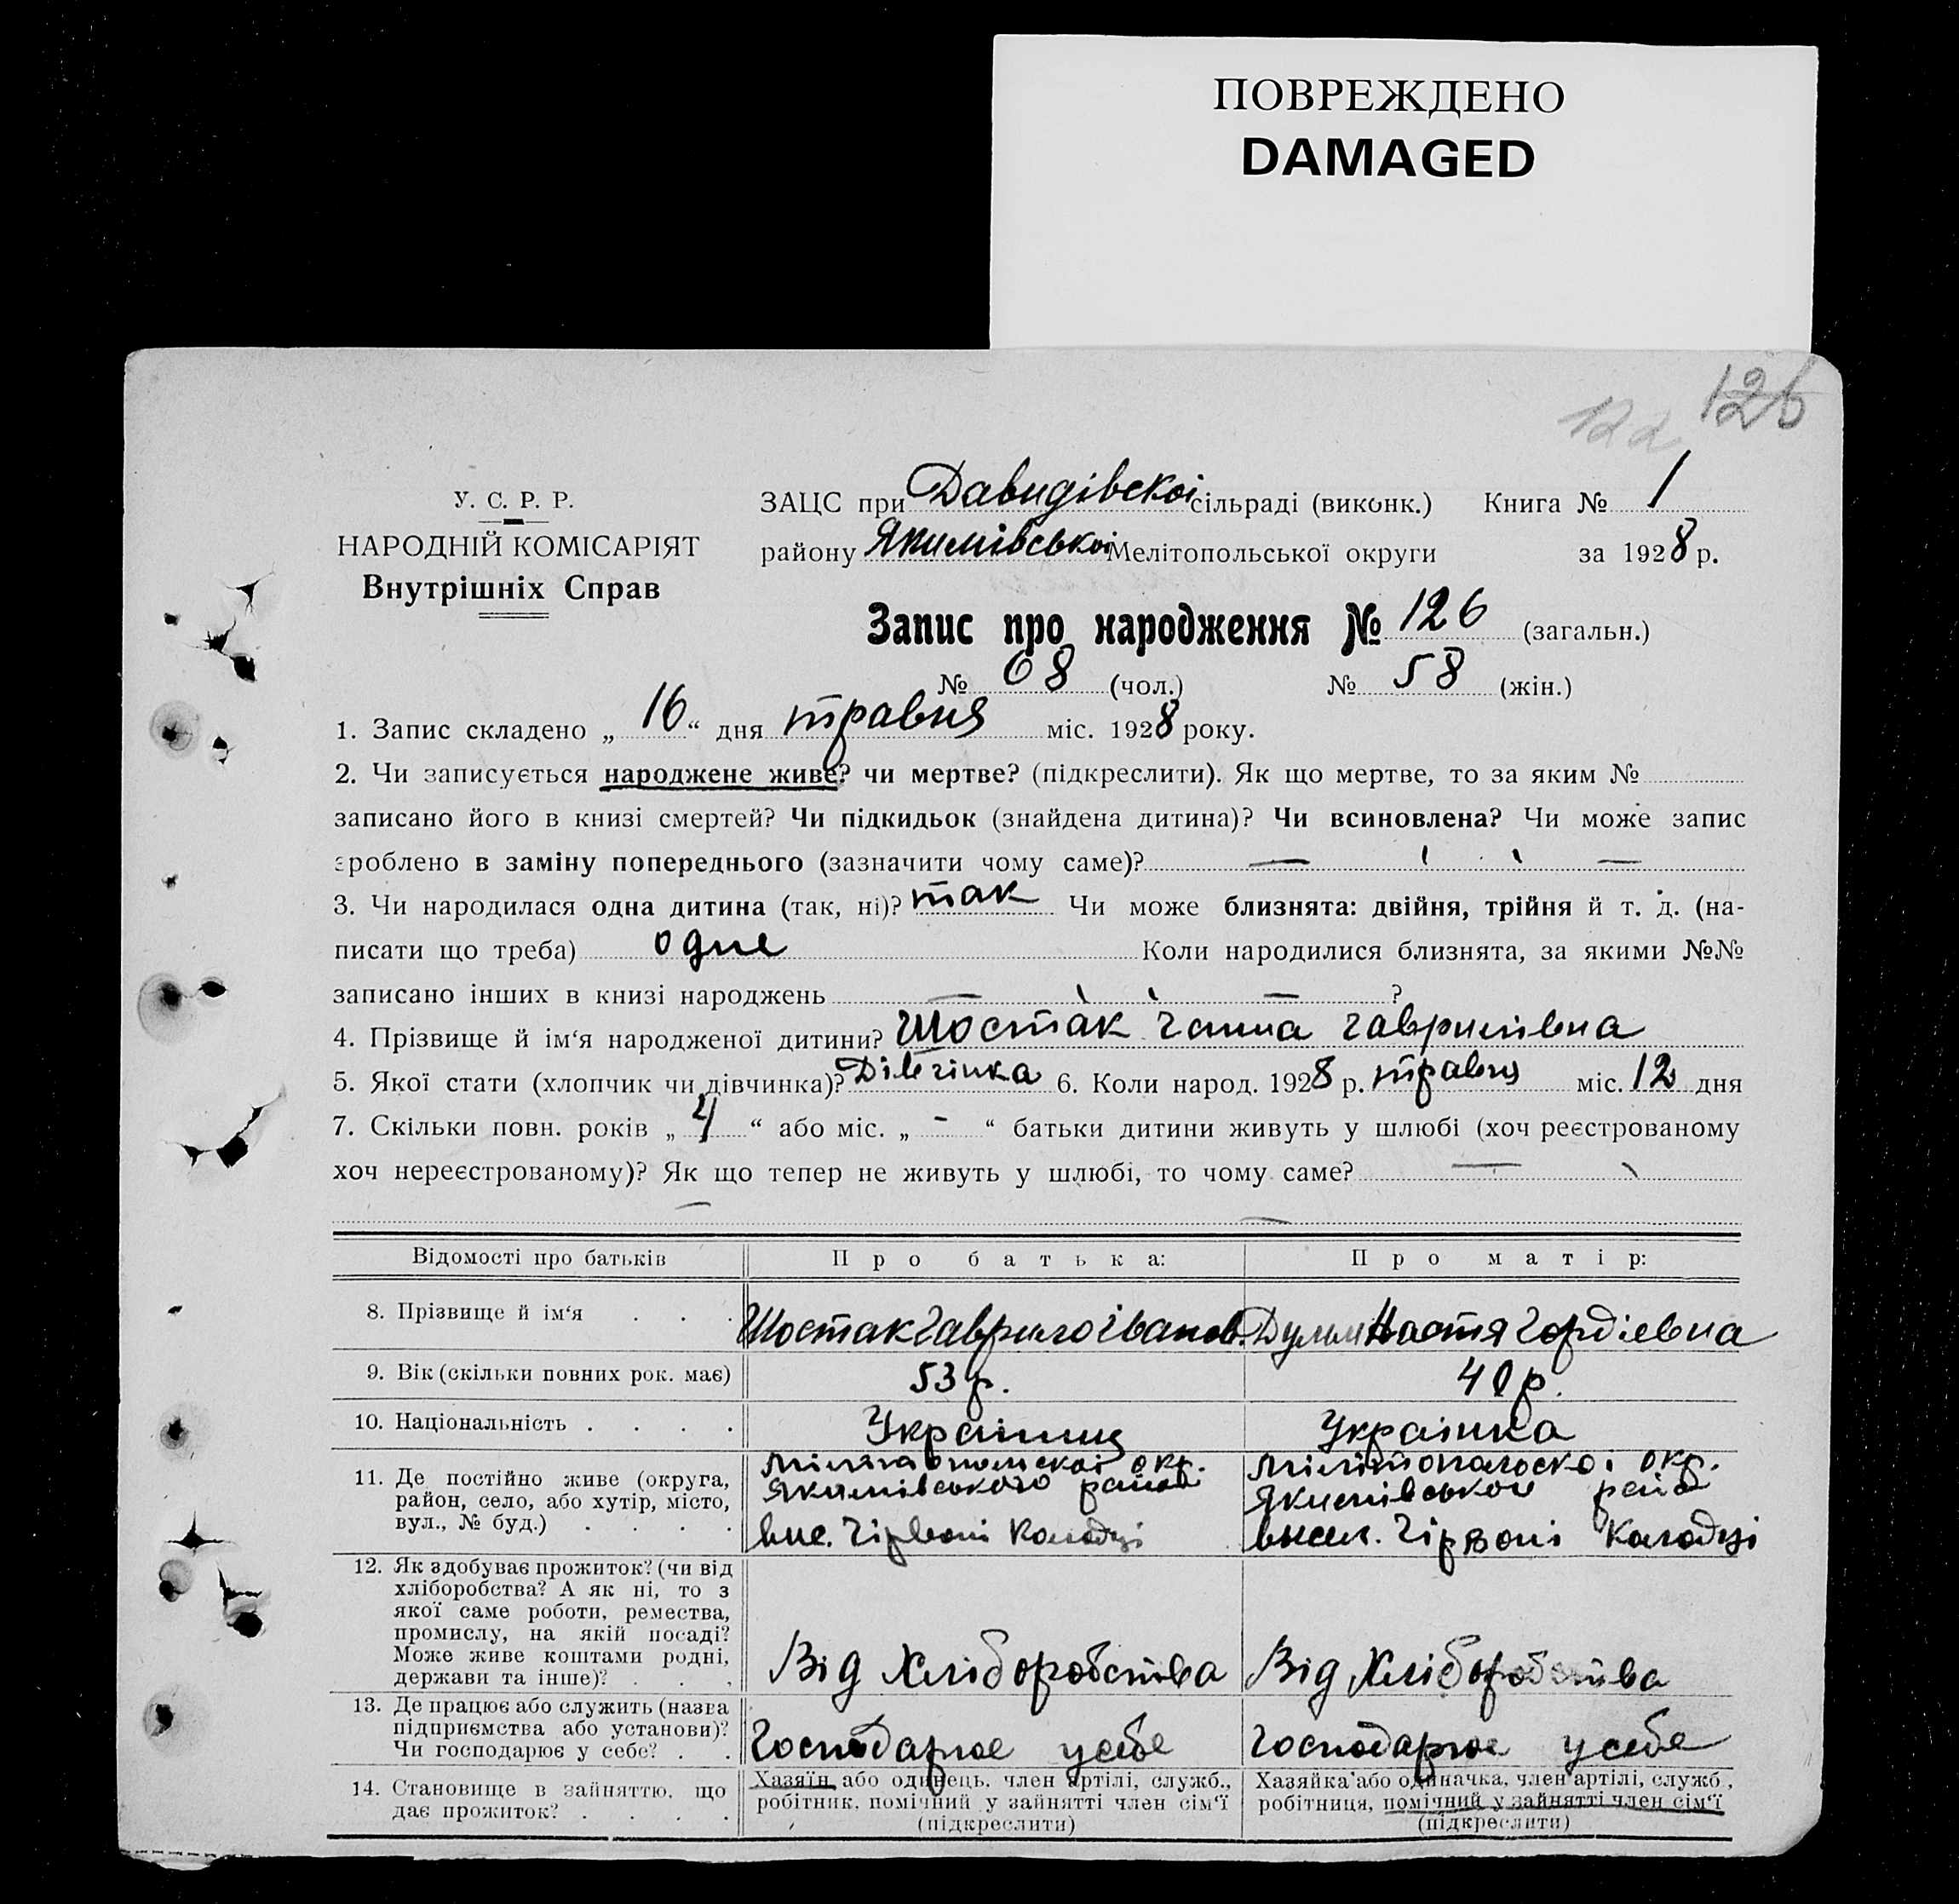 ПОВРЕЖДЕНО
DAMAGED
122 126
У. С. Р. Р.
НАРОДНІЙ КОМІСАРІЯТ
Внутрішніх Справ
ЗАЦС при Давидівскоі сільраді (виконк.) Книга № 1
району Якимівськоі Мелітопольської округи за 1928 р.
Запис про народження № 126 (загальн.)
№ 68 (чол.) № 58 (жін.)
1. Запис складено „ 16 “ дня травня міс. 1928 року.
2. Чи записується народжене живе? чи мертве? (підкреслити). Як що мертве, то за яким №
записано його в книзі смертей? Чи підкидьок (знайдена дитина)? Чи всиновлена? Чи може запис
зроблено в заміну попереднього (зазначити чому саме)? —
3. Чи народилася одна дитина (так, ні)? так Чи може близнята: двійня, трійня й т. д. (на-
писати що треба) одне Коли народилися близнята, за якими №№
записано інших в книзі народжень — ?
4. Прізвище й ім‘я народженої дитини? Шостак Ганна Гаврилівна
5. Якої стати (хлопчик чи дівчинка)? Дівчінка 6. Коли народ. 1928 р. травня міс. 12 дня
7. Скільки повн. років „ 4 “ або міс. „ - “ батьки дитини живуть у шлюбі (хоч реєстрованому
хоч нереєстрованому)? Як що тепер не живуть у шлюбі, то чому саме? —
Відомості про батьків Про батька: Про матір:
8. Прізвище й ім‘я . . . Шостак Гаврило Іванов. Настя Гордіевна
9. Вік (скільки повних рок. має) 53 р. 40 р.
10. Національність . . . . Українец Українка
11. Де постійно живе (округа,
район, село, або хутір, місто,
вул., № буд.) . . . .
окр.
Якимівського район
вис. Чірвоні Колодзі
Мілітопольскоі окр.
Якимівського район
висел. Чірвоні Колодзі
12. Як здобуває прожиток? (чи від
хліборобства? А як ні, то з
якої саме роботи, ремества,
промислу, на якій посаді?
Може живе коштами родні,
держави та інше)? . . .
Від Хліборобства Від Хліборобства
13. Де працює або служить (назва
підприємства або установи)?
Чи господарює у себе? . .
Господарює у себе Господарює у себе
14. Становище в зайняттю, що
дає прожиток? . . . .
Хазяїн або одинець, член артілі, служб.,
робітник, помічний у зайнятті член сім‘ї
(підкреслити)
Хазяйка або одиначка, член артілі, служб.,
робітниця, помічний у зайнятті член сім‘ї
(підкреслити)